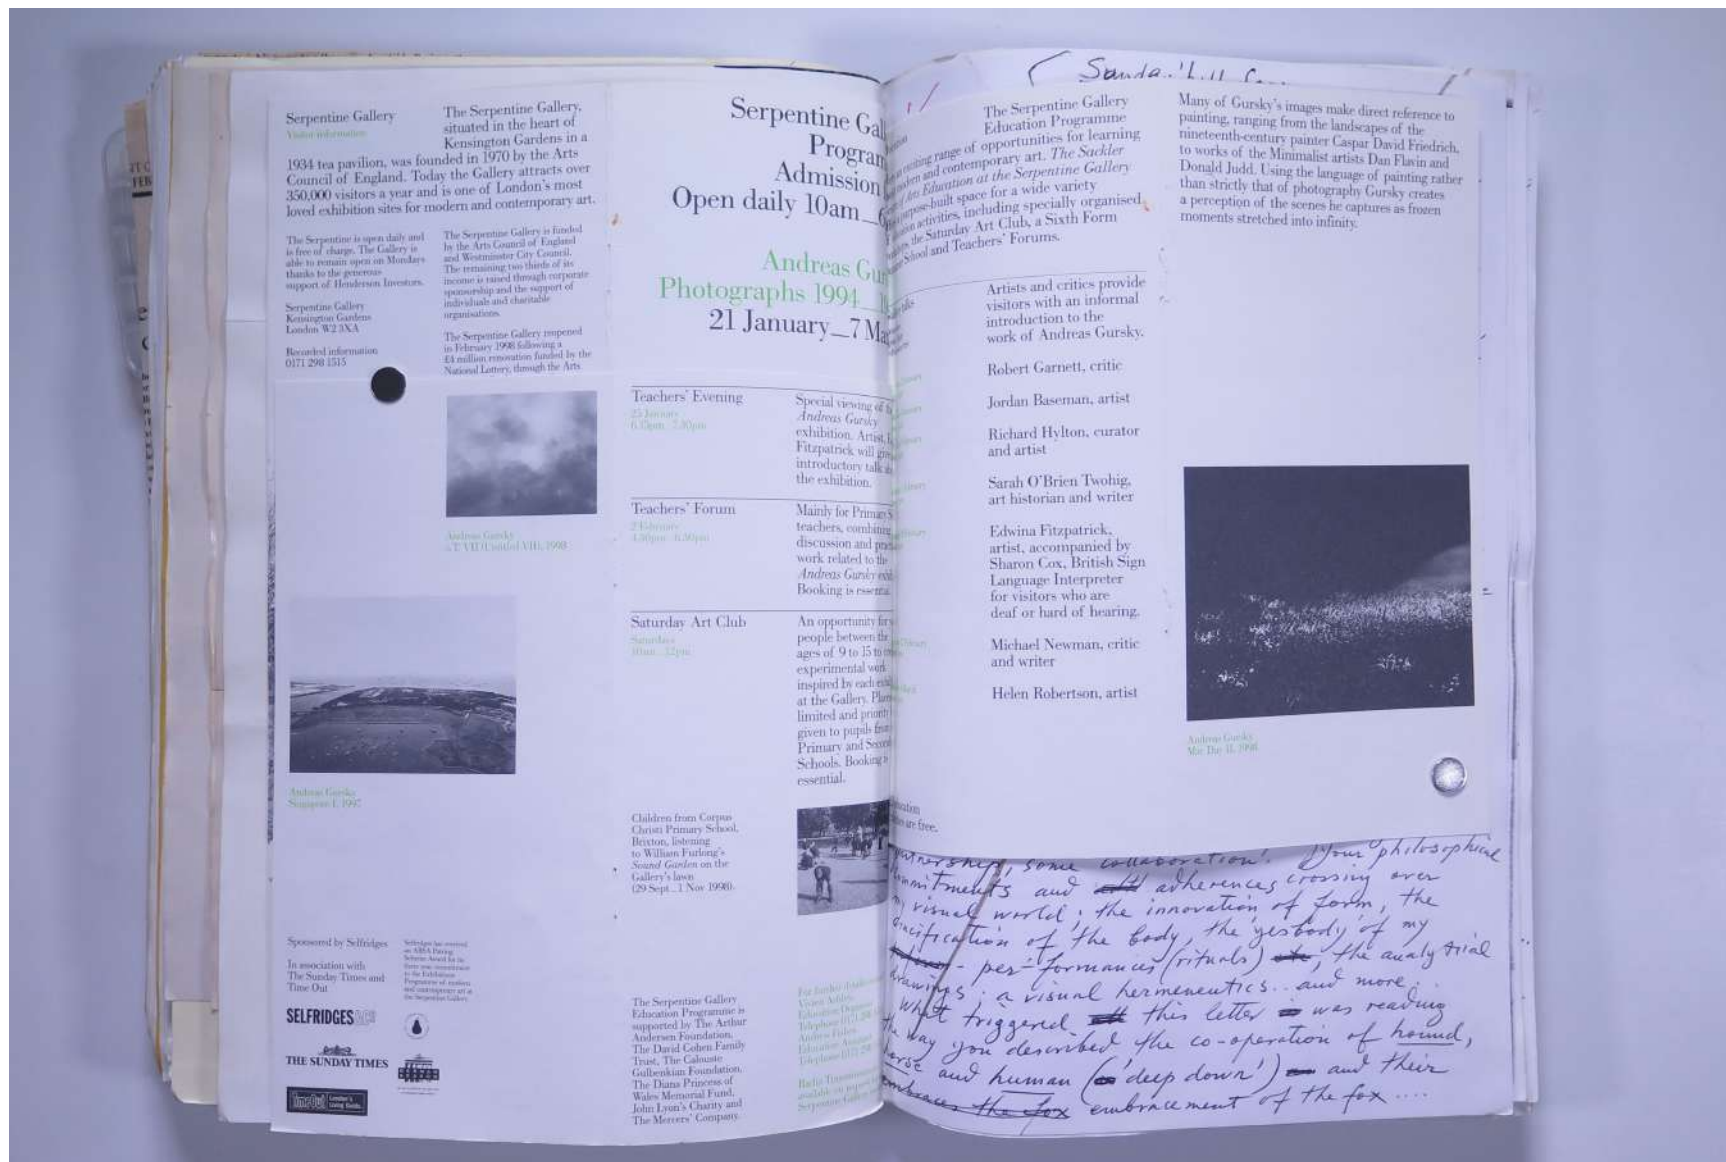 Serpentine Gallery
Visitor information
The Serpentine Gallery,
situated in the heart of
Kensington Gardens in a
1934 tea pavilion, was founded in 1970 by the Arts
Council of England. Today the Gallery attracts over
350,000 visitors a year and is one of London's most
loved exhibition sites for modern and contemporary art.
The Serpentine is open daily and
is free of charge. The Gallery is
able to remain open on Mondays
thanks to the generous
support of Henderson Investors.
Serpentine Gallery
Kensington Gardens
London W2 3XA
Recorded information
0171 298 1515
The Serpentine Gallery is funded
by the Arts Council of England
and Westminster City Council.
The remaining two thirds of its
income is raised through corporate
sponsorship and the support of
individuals and charitable
organisations.
The Serpentine Gallery reopened
in February 1998 following a
£4 million renovation funded by the
National Lottery, through the Arts
Andreas Gursky
o.T. VII (Untitled VII), 1998
Andreas Gursky
Singapore I, 1997
Sponsored by Selfridges
In association with
The Sunday Times and
Time Out
Selfridges has received
an ABSA Pairing
Scheme Award for its
three year commitment
to the Exhibitions
Programme of modern
and contemporary art at
the Serpentine Gallery.
SELFRIDGES&CO
THE SUNDAY TIMES
TimeOut London's
Living Guide.
Serpentine Gal
Program
Admission
Open daily 10am_6
Andreas Gur
Photographs 1994_
21 January_7 Ma
Teachers' Evening
25 January
6.15pm_7.30pm
Special viewing of
Andreas Gursky
exhibition. Artist,
Fitzpatrick will give
introductory talk
the exhibition.
Teachers' Forum
2 February
4.30pm_6.30pm
Mainly for Primary
teachers, combining
discussion and
work related to the
Andreas Gursky
Booking is essential
Saturday Art Club
Saturdays
10am_12pm
An opportunity for
people between the
ages of 9 to 15 to
experimental work
inspired by each
at the Gallery.
limited and priority
given to pupils from
Primary and
Schools. Booking is
essential.
Children from Corpus
Christi Primary School,
Brixton, listening
to William Furlong's
Sound Garden on the
Gallery's lawn
(29 Sept_1 Nov 1998).
The Serpentine Gallery
Education Programme is
supported by The Arthur
Andersen Foundation,
The David Cohen Family
Trust, The Calouste
Gulbenkian Foundation,
The Diana Princess of
Wales Memorial Fund,
John Lyon's Charity and
The Mercers' Company.
The Serpentine Gallery
Education Programme
range of opportunities for learning
and contemporary art. The Sackler
Arts Education at the Serpentine Gallery
space for a wide variety
activities, including specially organised
the Saturday Art Club, a Sixth Form
School and Teachers' Forums.
Artists and critics provide
visitors with an informal
introduction to the
work of Andreas Gursky.
Robert Garnett, critic
Jordan Baseman, artist
Richard Hylton, curator
and artist
Sarah O'Brien Twohig,
art historian and writer
Edwina Fitzpatrick,
artist, accompanied by
Sharon Cox, British Sign
Language Interpreter
for visitors who are
deaf or hard of hearing.
Michael Newman, critic
and writer
Helen Robertson, artist
are free.
Many of Gursky's images make direct reference to
painting, ranging from the landscapes of the
nineteenth-century painter Caspar David Friedrich,
to works of the Minimalist artists Dan Flavin and
Donald Judd. Using the language of painting rather
than strictly that of photography Gursky creates
a perception of the scenes he captures as frozen
moments stretched into infinity.
Andreas Gursky
May Day II, 1998
some collaboration! Your philosophical
commitments and adherences crossing over
my visual world; the innovation of form, the
of the body, the 'yesbody' of my
- per-formances (rituals), the
drawings; a visual hermeneutics.. and more.
What triggered this letter was reading
the way you described the co-operation of hound,
horse and human ('deep down') and their
embraces the fox embracement of the fox ....